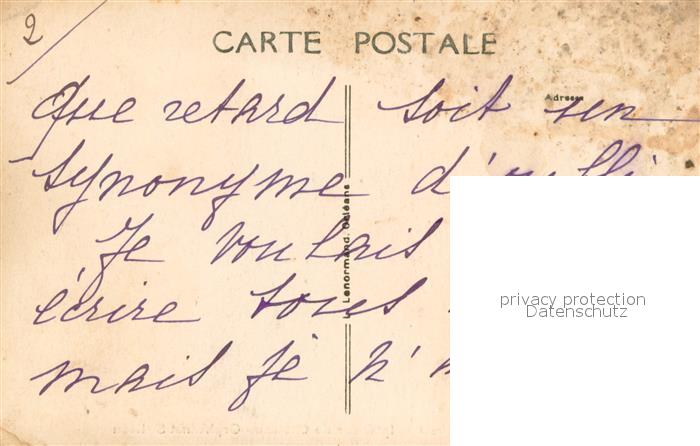 2/
CARTE POSTALE
Adresse
que retard soit un
synonyme d'oubli
Je voulais
écrire tous
mais je n'
Lenormand, Orléans
privacy protection
Datenschutz